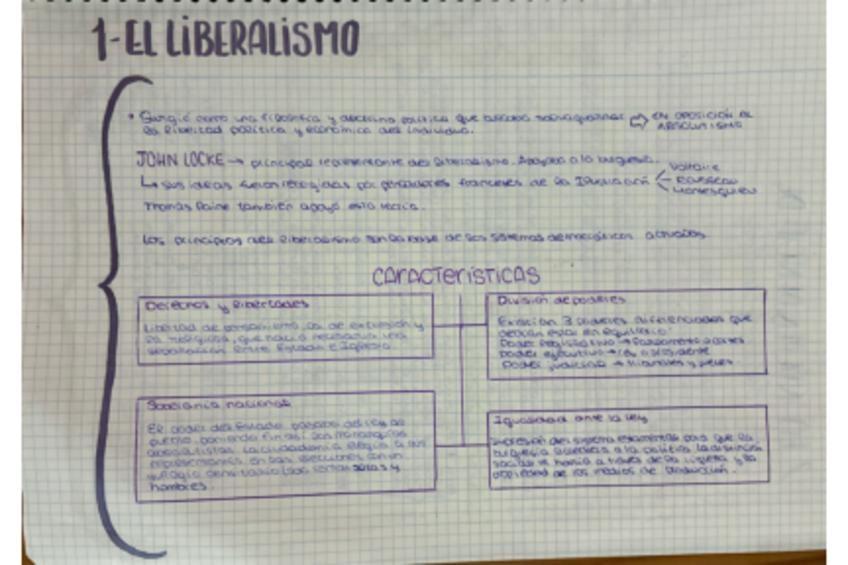 1-EL LIBERALISMO
• Surgió como una filosofía y doctrina política que buscaba salvaguardar ⇨ EN OPOSICIÓN AL
la libertad política y económica del individuo. ABSOLUTISMO
JOHN LOCKE → principal representante del liberalismo. Apoyaba a la burguesía.
Voltaire
↳ sus ideas fueron recogidas por pensadores franceses de la Ilustración
Rousseau
Montesquieu
Thomas Paine también apoyó esta teoría.
Los principios del liberalismo son la base de los sistemas democráticos actuales
CARACTERÍSTICAS
Derechos y libertades
Libertad de pensamiento, la de expresión y
la religiosa, que hacía necesaria una
separación entre Estado e Iglesia.
División de poderes
Existían 3 poderes diferenciados que
debían estar en equilibrio:
Poder legislativo → Parlamento o cortes
poder ejecutivo → rey o presidente
Poder judicial → tribunales y jueces.
Soberanía nacional
El poder del Estado pasaba del rey al
pueblo, poniendo fin así a las monarquías
absolutistas. La ciudadanía elegía a sus
representantes en las elecciones con un
sufragio censitario (las rentas altas y
hombres.
Igualdad ante la ley
Supresión del sistema estamental para que la
burguesía accediera a la política. La distinción
social se hacía a través de la riqueza y la
propiedad de los medios de producción.